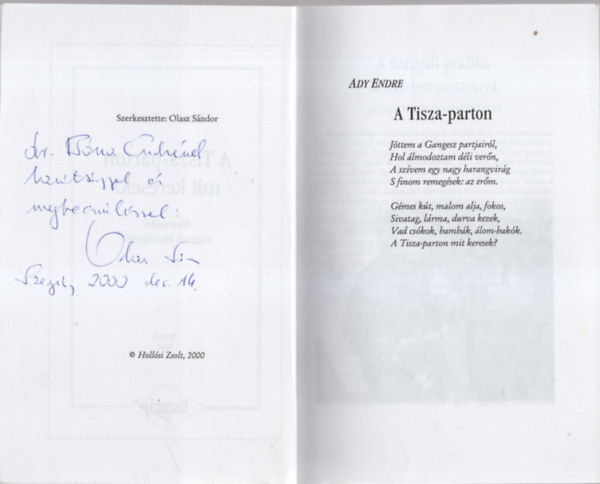 Szerkesztette: Olasz Sándor
dr. Bóna Endrének
barátsággal és
megbecsüléssel:
Szeged, 2000 dec. 14.
© Hollósi Zsolt, 2000
ADY ENDRE
A Tisza-parton
Jöttem a Gangesz partjairól,
Hol álmodoztam déli verőn,
A szívem egy nagy harangvirág
S finom remegések: az erőm.
Gémes kút, malom alja, fokos,
Sivatag, lárma, durva kezek,
Vad csókok, bambák, álom-bakók.
A Tisza-parton mit keresek?